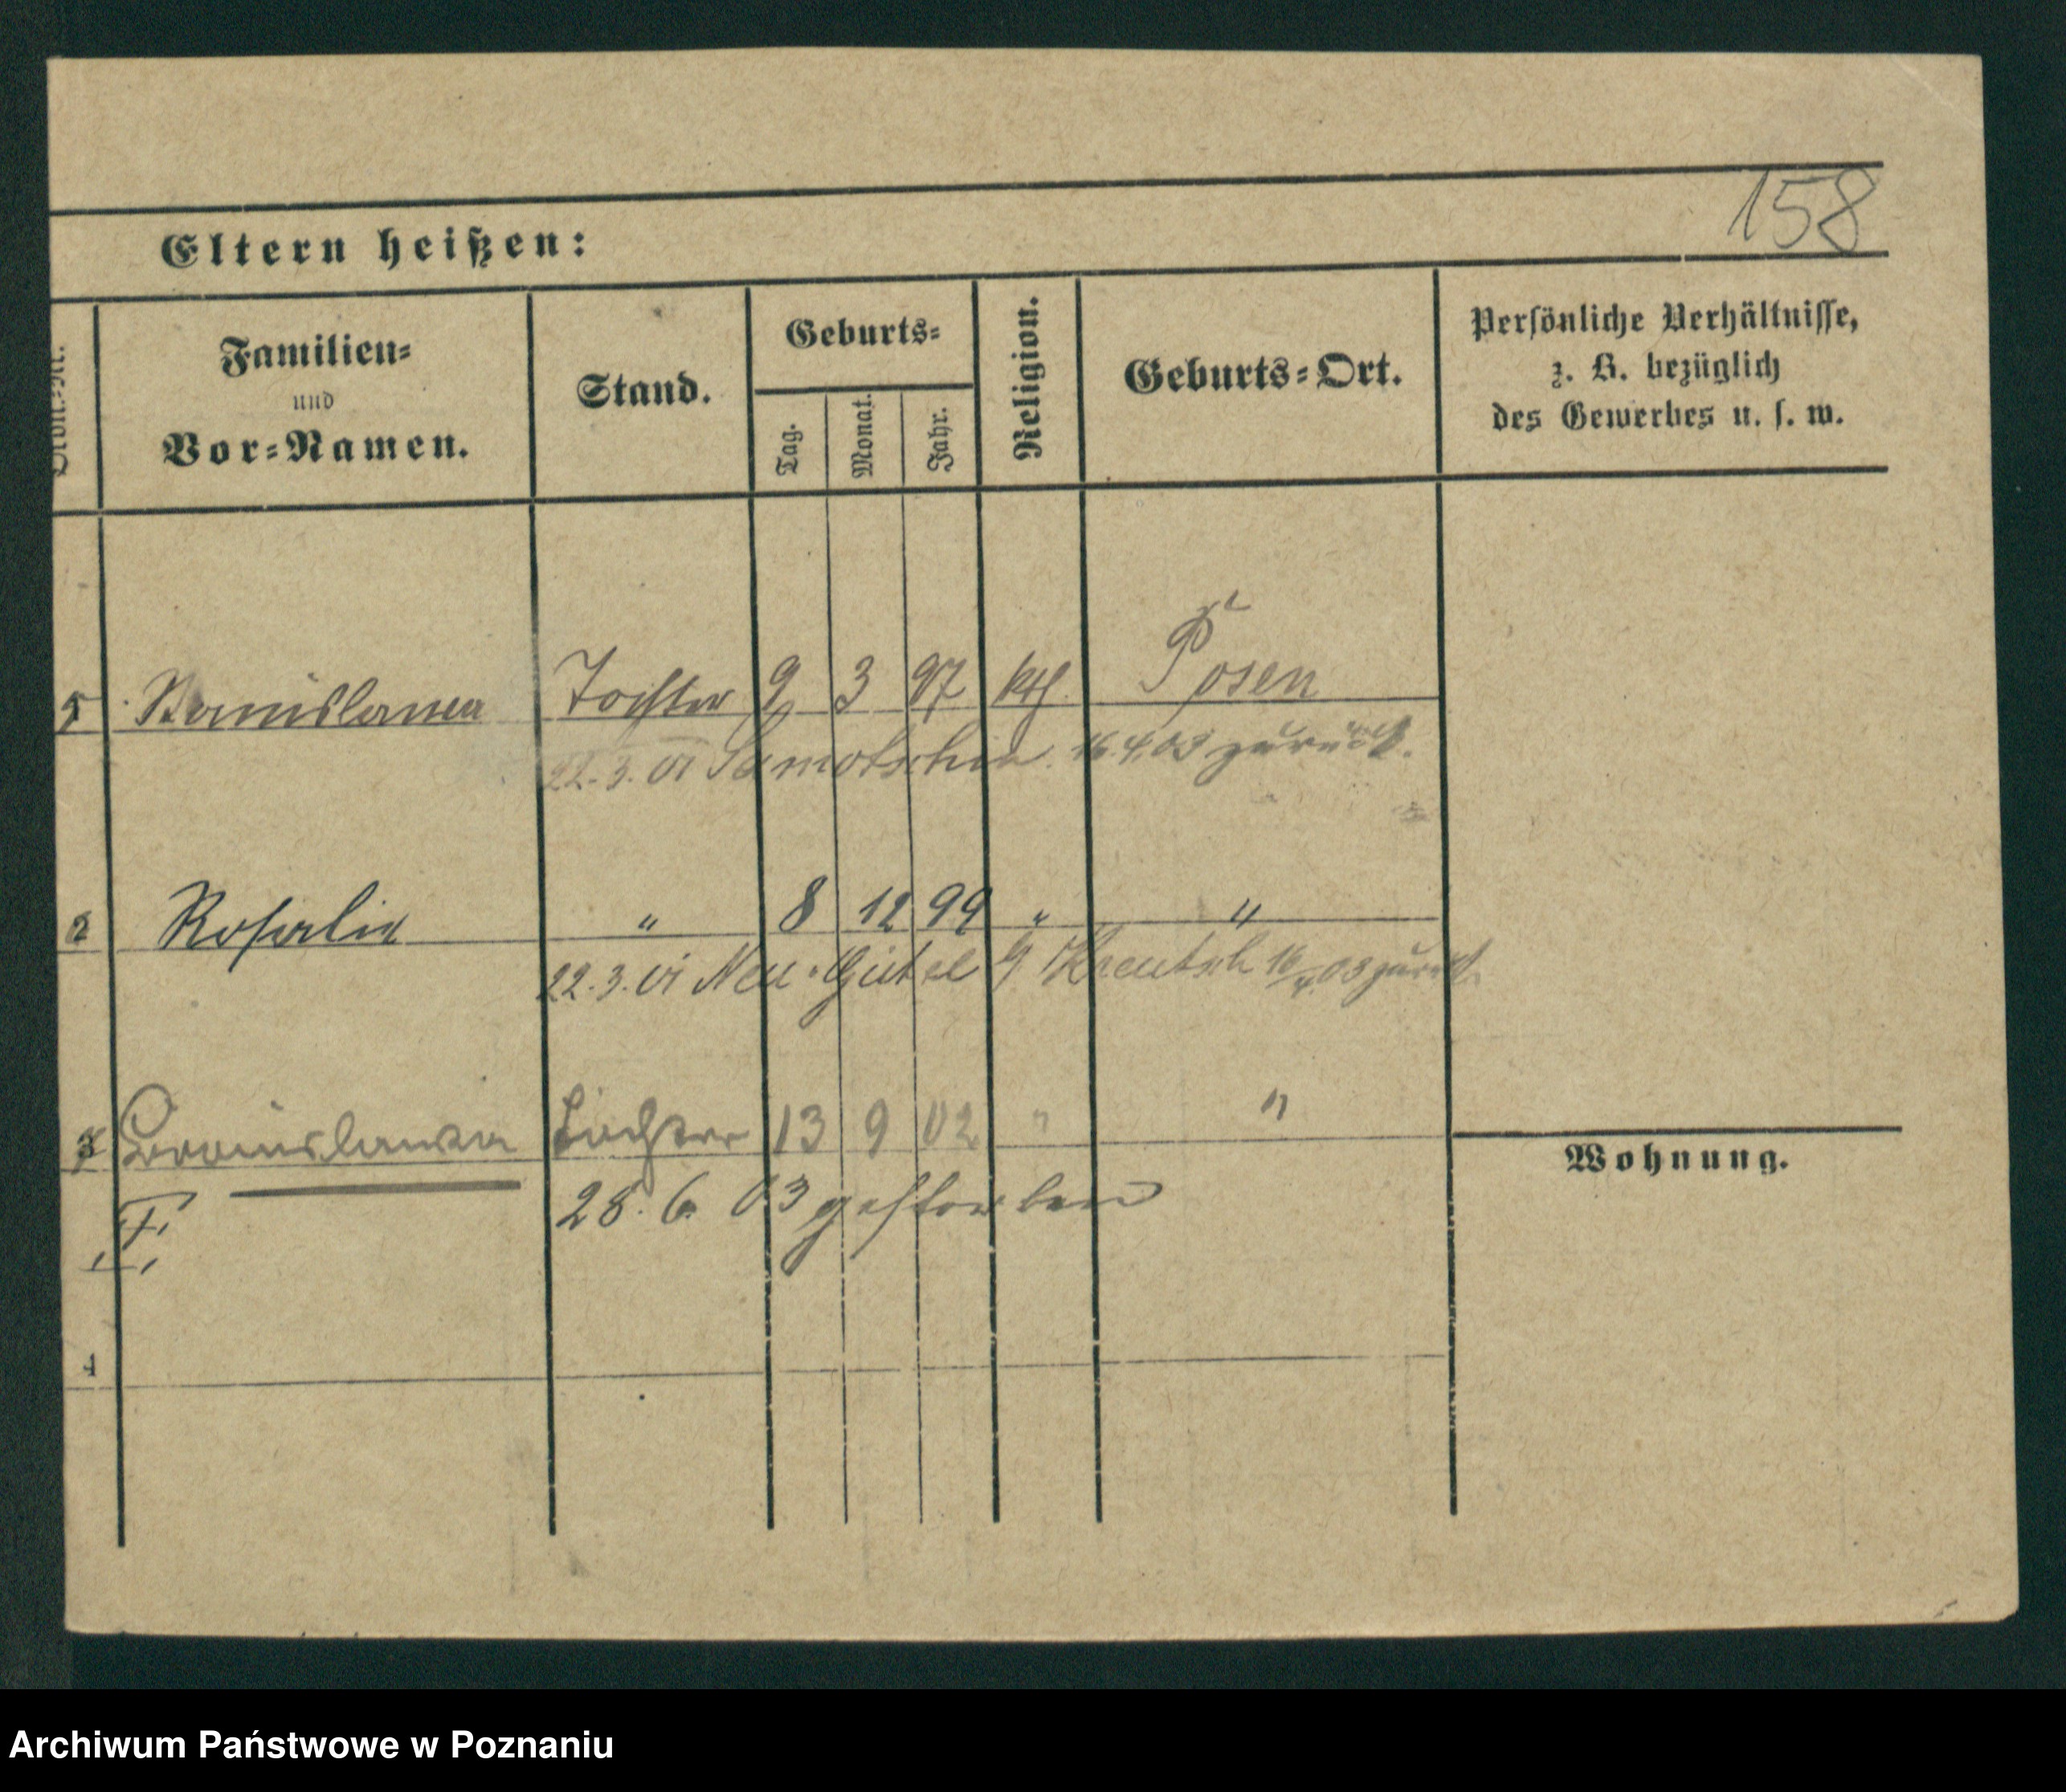 158
Eltern heißen:
Ordn.-Nr.
Familien-
und
Vor-Namen.
Stand.
Geburts-
Tag.
Monat.
Jahr.
Religion.
Geburts-Ort.
Persönliche Verhältnisse,
z. B. bezüglich
des Gewerbes u. s. w.
1 Stanislawa Tochter 9 3 97 kth. Posen
22.3.01 Samotschin. 16.4.03 zurück.
2 Rosalie " 8 12 99 " "
22.3.01 Neu-Gütel 16/4 03 zurück.
3 Bronislawa Tochter 13 9 02 " "
28. 6. 03 gestorben
4
Wohnung.
Archiwum Państwowe w Poznaniu